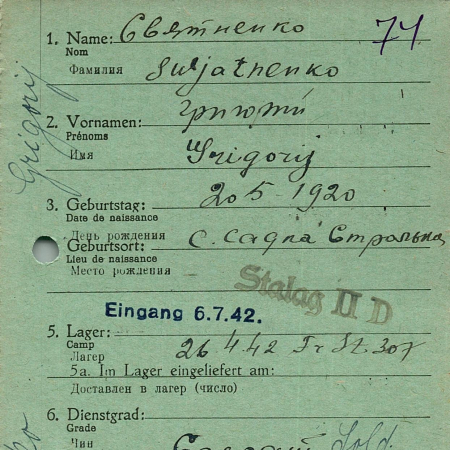 74
1. Name: Святненко
Nom
Фамилия Swjathnenko
2. Vornamen: Григорий
Prénoms
Имя Grigorij
Grigorij
3. Geburtstag: 20 5 - 1920
Date de naissance
День рождения
Geburtsort: с. Садна Стралька
Lieu de naissance
Место рождения
Stalag II D
Eingang 6.7.42.
5. Lager: 26 4 42 Fr St. 307
Camp
Лагер
5a. Im Lager eingeliefert am:
Доставлен в лагер (число)
6. Dienstgrad:
Grade
Чин Sold.